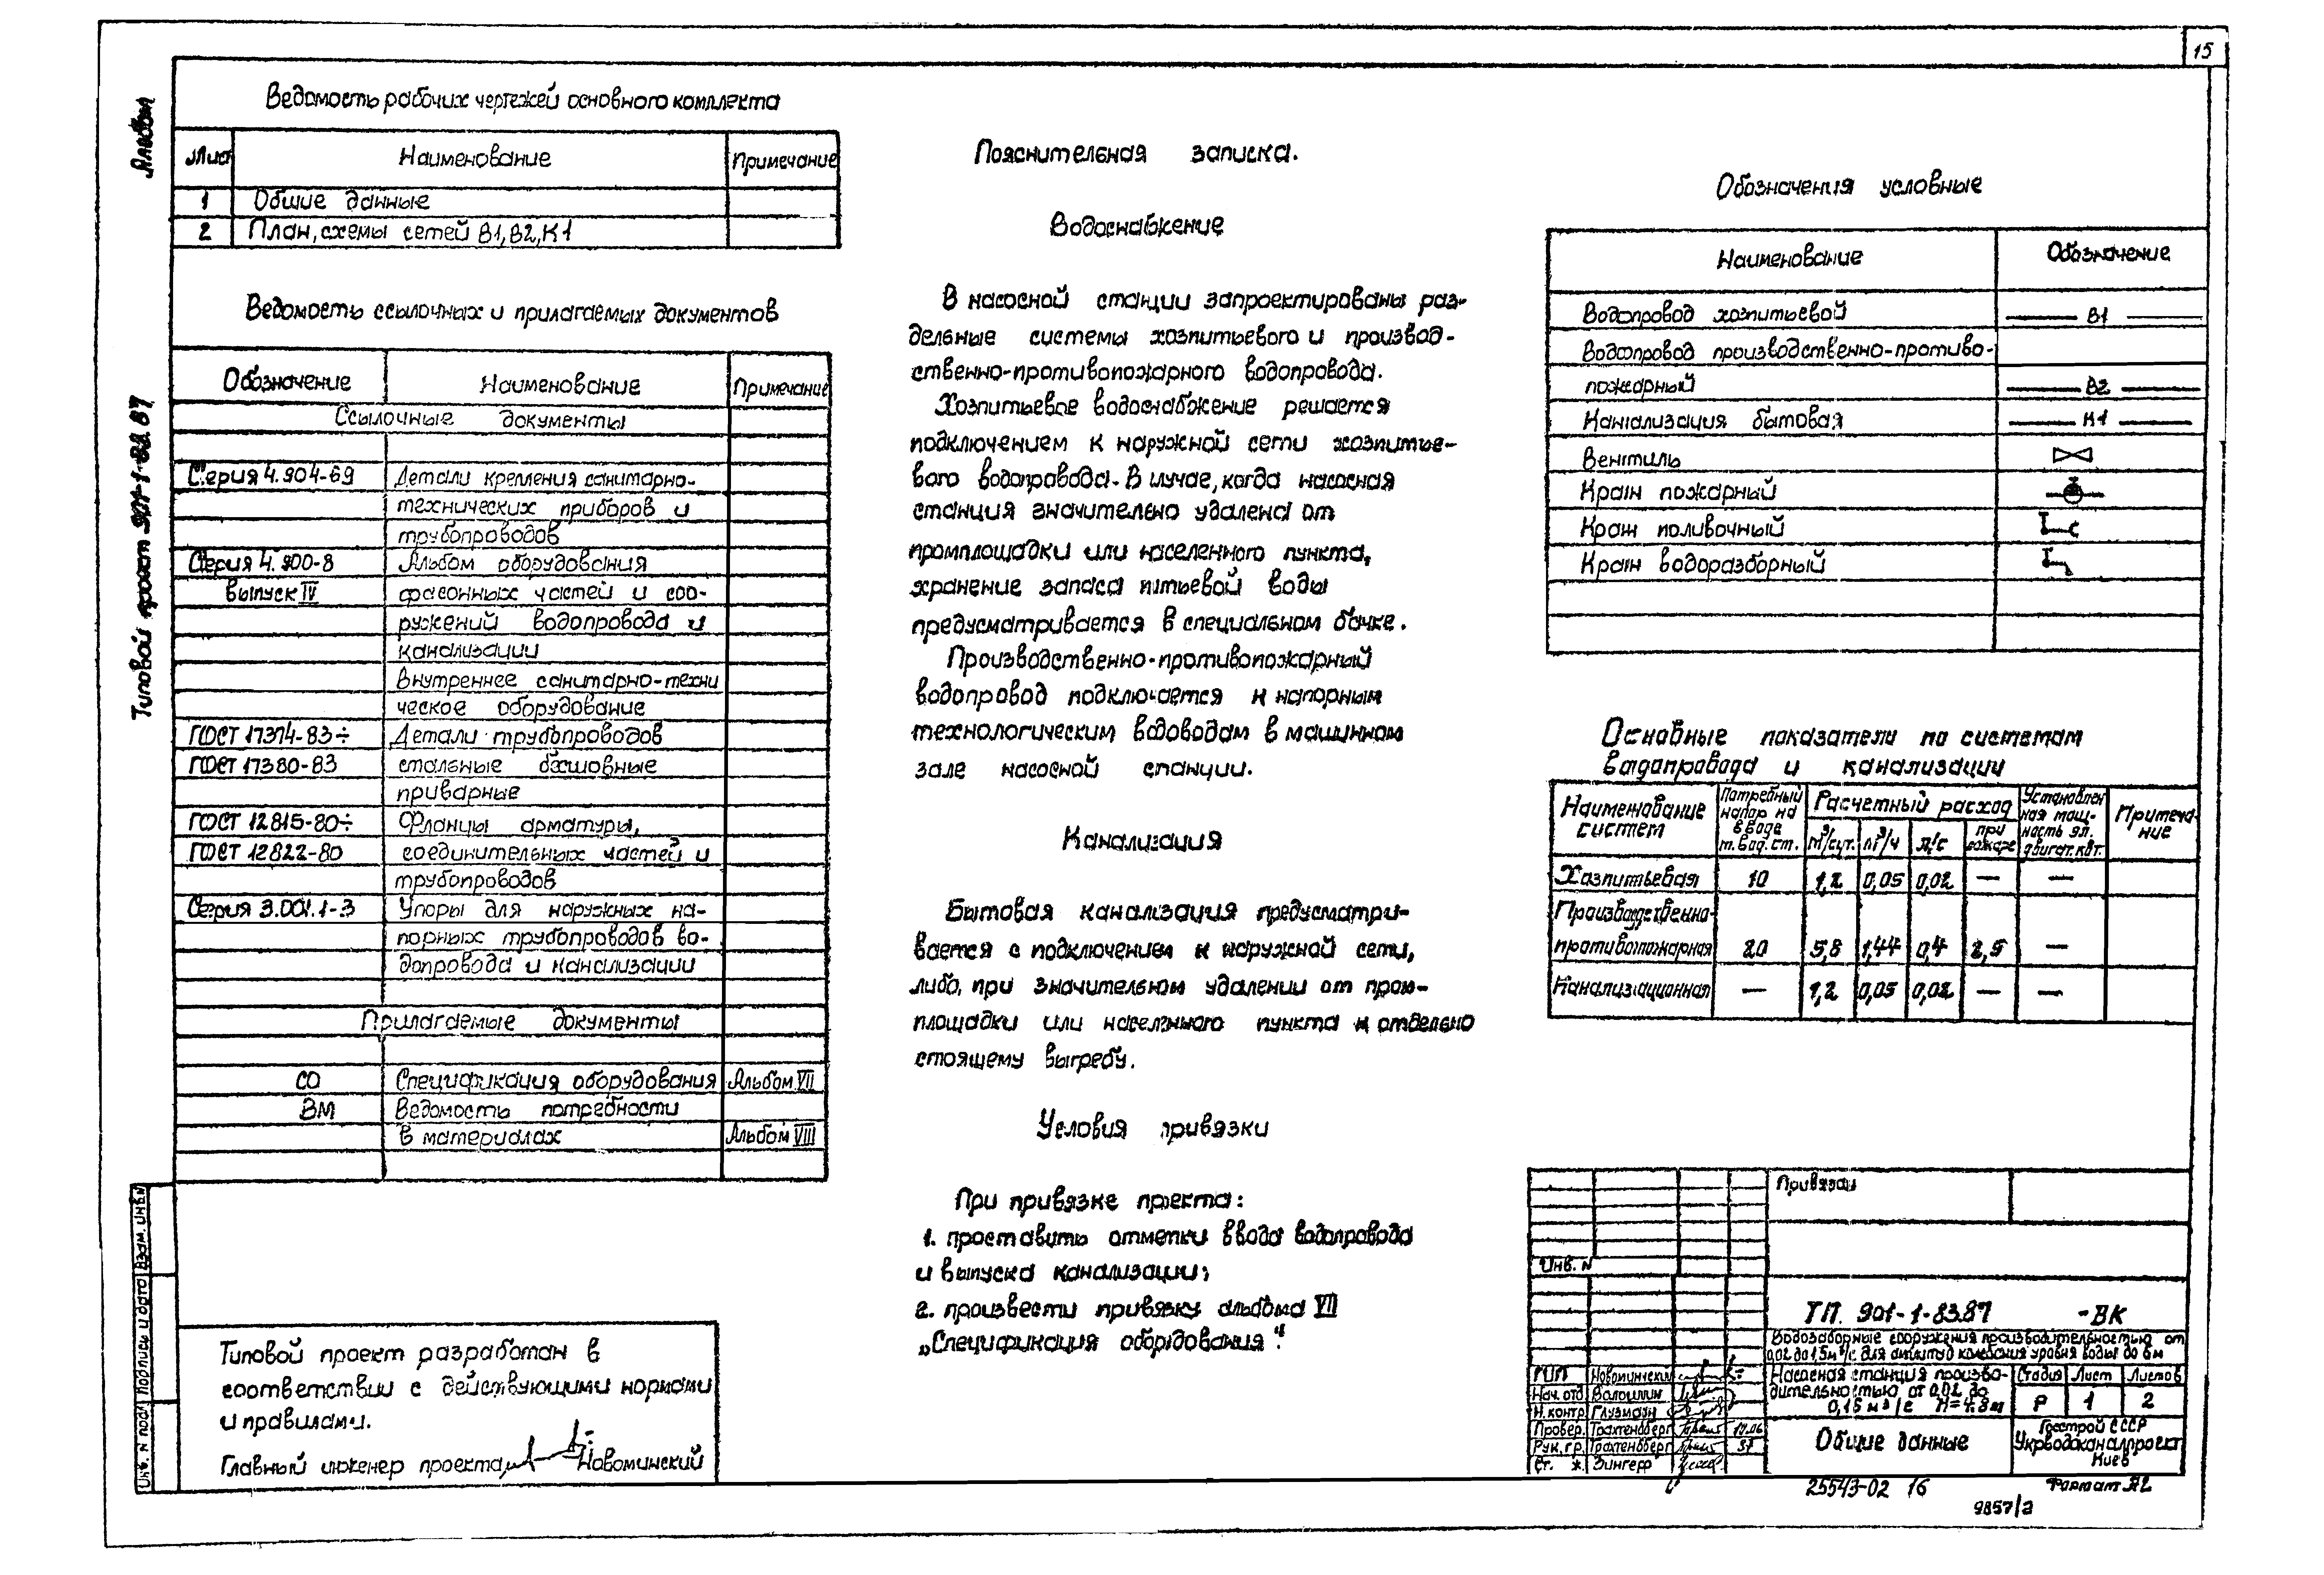 15
Альбом
Типовой проект 901-1-83.87
Ведомость рабочих чертежей основного комплекта
Лист Наименование Примечание
1 Общие данные
2 План, схемы сетей В1, В2, К1
Ведомость ссылочных и прилагаемых документов
Обозначение Наименование Примечание
Ссылочные документы
Серия 4.904-69 Детали крепления санитарно-
технических приборов и
трубопроводов
Серия 4.900-8 Альбом оборудования
выпуск IV фасонных частей и соо-
ружений водопровода и
канализации
Внутреннее санитарно-техни
ческое оборудование
ГОСТ 17374-83÷ Детали трубопроводов
ГОСТ 17380-83 стальные бесшовные
приварные
ГОСТ 12815-80÷ Фланцы арматуры,
ГОСТ 12822-80 соединительных частей и
трубопроводов
Серия 3.001.1-3 Упоры для наружных на-
порных трубопроводов во-
допровода и канализации
Прилагаемые документы
СО Спецификация оборудования Альбом VII
ВМ Ведомость потребности
в материалах Альбом VIII
Типовой проект разработан в
соответствии с действующими нормами
и правилами.
Главный инженер проекта Новоминский
Взам. инв. N
Подпись и дата
Инв. N подл
Пояснительная записка.
Водоснабжение
В насосной станции запроектированы раз-
дельные системы хозпитьевого и производ-
ственно-противопожарного водопровода.
Хозпитьевое водоснабжение решается
подключением к наружной сети хозпитье-
вого водопровода. В случае, когда насосная
станция значительно удалена от
промплощадки или населенного пункта,
хранение запаса питьевой воды
предусматривается в специальном бачке.
Производственно-противопожарный
водопровод подключается к напорным
технологическим водоводам в машинном
зале насосной станции.
Канализация
Бытовая канализация предусматри-
вается с подключением к наружной сети,
либо, при значительном удалении от пром-
площадки или населенного пункта к отдельно
стоящему выгребу.
Условия привязки
При привязке проекта:
1. проставить отметки ввода водопровода
и выпуска канализации;
2. произвести привязку альбома VII
„Спецификация оборудования“.
Обозначения условные
Наименование Обозначение
Водопровод хозпитьевой В1
Водопровод производственно-противо-
пожарный В2
Канализация бытовая К1
Вентиль
Кран пожарный
Кран поливочный
Кран водоразборный
Основные показатели по системам
водопровода и канализации
Наименование систем Потребный напор на вводе м.вод.ст. Расчетный расход м³/сут. м³/ч л/с при пожаре Установлен ная мощ- ность эл. двигат. кВт. Примеча- ние
Хозпитьевая 10 1,2 0,05 0,02 — —
Производственно-
противопожарная 20 5,8 1,44 0,4 2,5 —
Канализационная — 1,2 0,05 0,02 — —
Привязан
Инв. N
ТП 901-1-83.87 -ВК
Водозаборные сооружения производительностью от
0,02 до 1,5 м³/с для амплитуд колебания уровня воды до 6 м
ГИП Новоминский
Нач. отд Волошин
Н. контр Глузман
Провер. Трахтенберг
Рук. гр. Трахтенберг 87
Ст. ж. Зингер
Насосная станция произво-
дительностью от 0,02 до
0,15 м³/с Н=4.8м
Стадия Лист Листов
Р 1 2
Общие данные
Госстрой СССР
Укрводоканалпроект
Киев
25543-02 16
Формат А2
9857/2